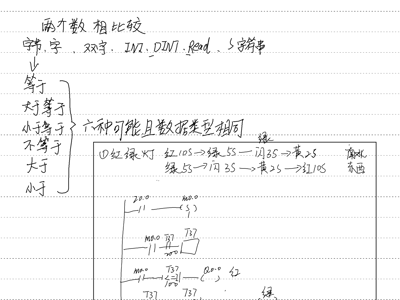 两个数相比较
字节、字、双字、INT、DINT、Read、S字符串
等于
大于等于
小于等于
不等于
大于
小于
六种可能且数据类型相同
绿
①红绿灯 红10S→绿5S—闪3S→黄2S 南北
绿5S→闪3S→黄2S→红10S 东西
M0.0
(S)
M0.0 T37 T37
M0.0 T37
<=I
100
Q0.0 红
T37 T37 绿